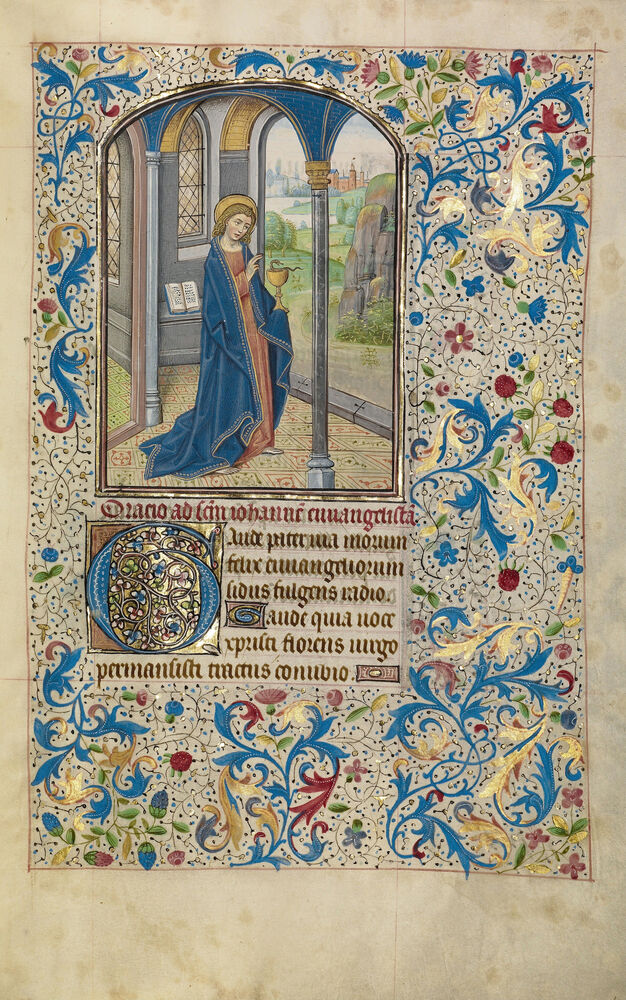 Oracio ad scm iohanne euuangelista.
Gaude pater uia morum
felix euuangeliorum
sidus fulgens radio.
Gaude quia uoce
xpristi florens uirgo
permansisti tractus conubio.